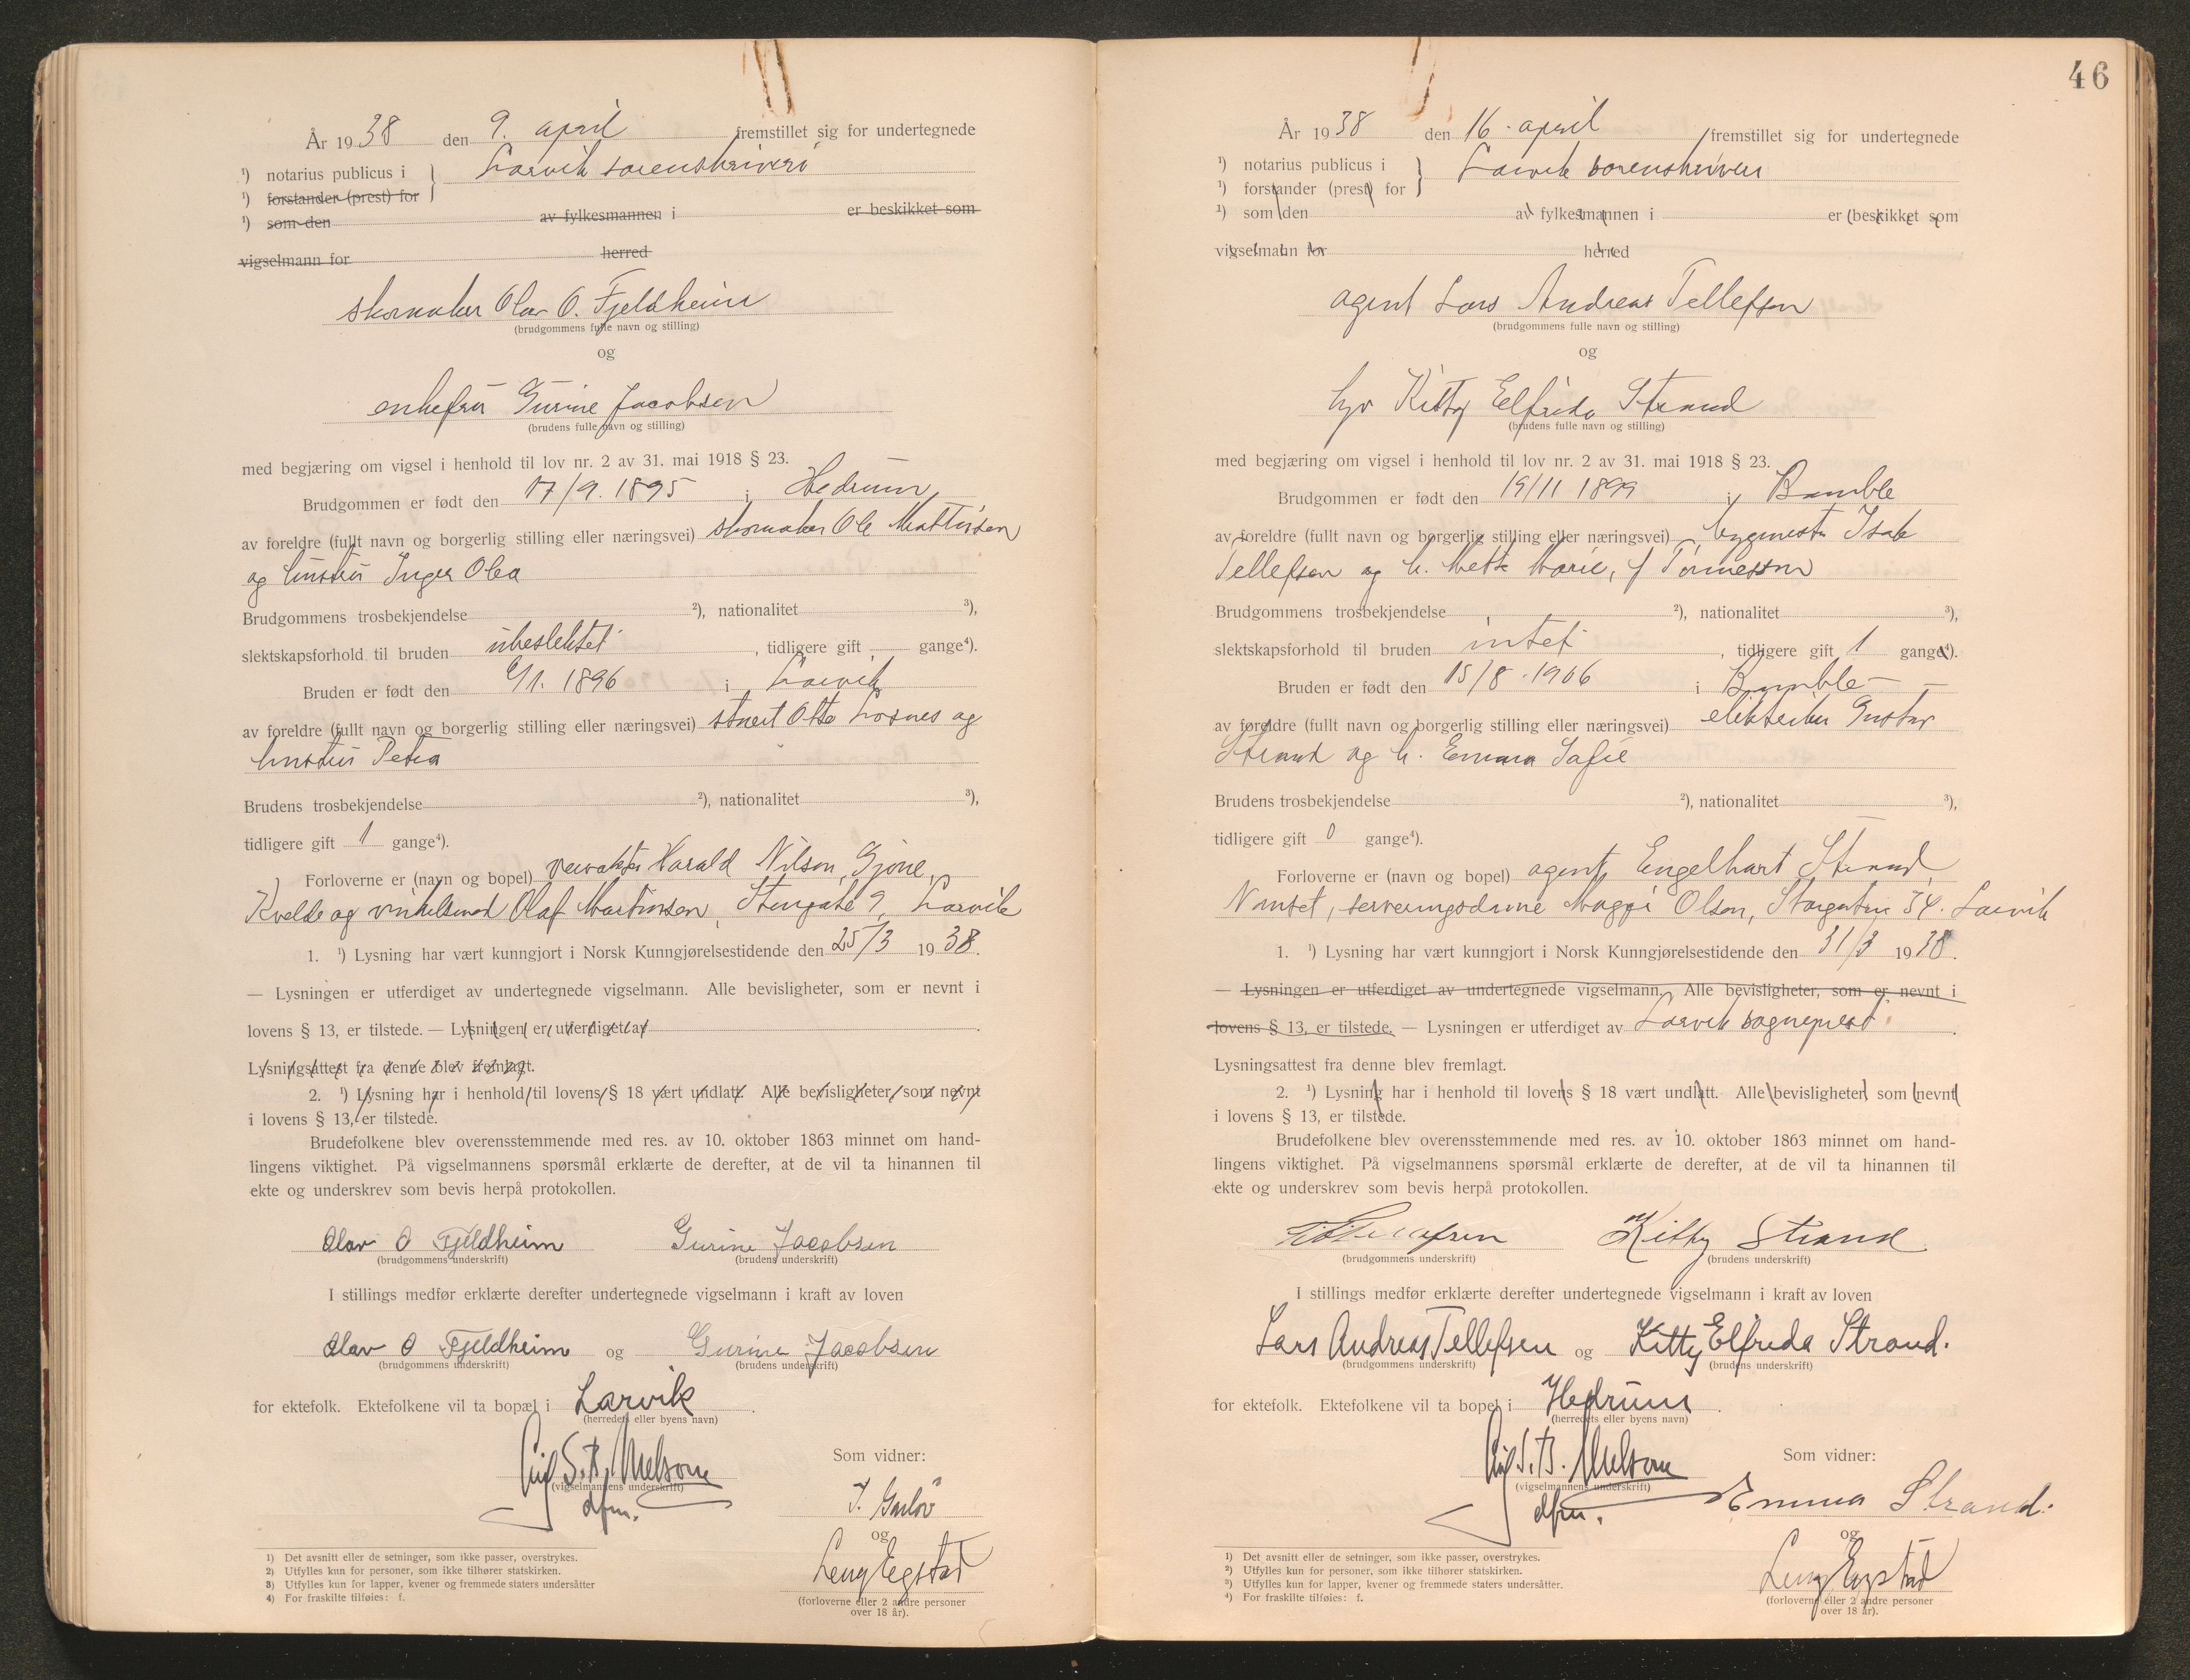 År 1938 den 9. april fremstillet sig for undertegnede
¹) notarius publicus i } Larvik sorenskriveri
¹) forstander (prest) for
¹) som den av fylkesmannen i er beskikket som
vigselmann for herred
skomaker Olav O. Fjeldheim
(brudgommens fulle navn og stilling)
og
enkefru Gurine Jacobsen
(brudens fulle navn og stilling)
med begjæring om vigsel i henhold til lov nr. 2 av 31. mai 1918 § 23.
Brudgommen er født den 17/9. 1895 i Hedrum
av foreldre (fullt navn og borgerlig stilling eller næringsvei) skomaker Ole Mathisen
og hustru Inger Olea
Brudgommens trosbekjendelse ²), nationalitet ³),
slektskapsforhold til bruden ubeslektet, tidligere gift gange⁴).
Bruden er født den 6/1. 1896 i Larvik
av foreldre (fullt navn og borgerlig stilling eller næringsvei) Otto og
hustru Petra
Brudens trosbekjendelse ²), nationalitet ³),
tidligere gift 1 gange⁴).
Forloverne er (navn og bopel) Harald Nilsen, Gjone,
Kvelde og Olaf Martinsen, Stengate 9, Larvik
1. ¹) Lysning har vært kunngjort i Norsk Kunngjørelsestidende den 25/3 1938.
— Lysningen er utferdiget av undertegnede vigselmann. Alle bevisligheter, som er nevnt i
lovens § 13, er tilstede. — Lysningen er utferdiget av
Lysningsattest fra denne blev fremlagt.
2. ¹) Lysning har i henhold til lovens § 18 vært undlatt. Alle bevisligheter, som nevnt
i lovens § 13, er tilstede.
Brudefolkene blev overensstemmende med res. av 10. oktober 1863 minnet om hand-
lingens viktighet. På vigselmannens spørsmål erklærte de derefter, at de vil ta hinannen til
ekte og underskrev som bevis herpå protokollen.
Olav O Fjeldheim Gurine Jacobsen
(brudgommens underskrift) (brudens underskrift)
I stillings medfør erklærte derefter undertegnede vigselmann i kraft av loven
Olav O Fjeldheim og Gurine Jacobsen
(brudgommens underskrift) (brudens underskrift)
for ektefolk. Ektefolkene vil ta bopæl i Larvik.
(herredets eller byens navn)
Som vidner:
(vigselmannens underskrift)
dfm.
og
Leng Egstad
(forloverne eller 2 andre personer
over 18 år).
1) Det avsnitt eller de setninger, som ikke passer, overstrykes.
2) Utfylles kun for personer, som ikke tilhører statskirken.
3) Utfylles kun for lapper, kvener og fremmede staters undersåtter
4) For fraskilte tilføies: f.
46
År 1938 den 16. april fremstillet sig for undertegnede
¹) notarius publicus i } Larvik sorenskriveri
¹) forstander (prest) for
¹) som den av fylkesmannen i er beskikket som
vigselmann for herred
agent Lars Andreas Tellefsen
(brudgommens fulle navn og stilling)
og
Kitty Elfrida Strand
(brudens fulle navn og stilling)
med begjæring om vigsel i henhold til lov nr. 2 av 31. mai 1918 § 23.
Brudgommen er født den 19/11 1899 i Bamble
av foreldre (fullt navn og borgerlig stilling eller næringsvei) bygmester Isak
Tellefsen og h. Mette Marie, f
Brudgommens trosbekjendelse ²), nationalitet ³),
slektskapsforhold til bruden intet, tidligere gift 1 gange⁴).
Bruden er født den 15/8 - 1906 i Bamble
av foreldre (fullt navn og borgerlig stilling eller næringsvei) elektriker Gustav
Strand og h. Emma Sofie
Brudens trosbekjendelse ²), nationalitet ³),
tidligere gift 0 gange⁴).
Forloverne er (navn og bopel) agent Engelhart Strand,
Nanset, serveringsdame Maggi Olsen, Storgaten 34. Larvik
1. ¹) Lysning har vært kunngjort i Norsk Kunngjørelsestidende den 31/3 1938.
— Lysningen er utferdiget av undertegnede vigselmann. Alle bevisligheter, som er nevnt i
lovens § 13, er tilstede. — Lysningen er utferdiget av Larvik sogneprest.
Lysningsattest fra denne blev fremlagt.
2. ¹) Lysning har i henhold til lovens § 18 vært undlatt. Alle bevisligheter som nevnt
i lovens § 13, er tilstede.
Brudefolkene blev overensstemmende med res. av 10. oktober 1863 minnet om hand-
lingens viktighet. På vigselmannens spørsmål erklærte de derefter, at de vil ta hinannen til
ekte og underskrev som bevis herpå protokollen.
Kitty Strand
(brudgommens underskrift) (brudens underskrift)
I stillings medfør erklærte derefter undertegnede vigselmann i kraft av loven
Lars Andreas Tellefsen og Kitty Elfrida Strand.
(brudgommens underskrift) (brudens underskrift)
for ektefolk. Ektefolkene vil ta bopel i Hedrum.
(herredets eller byens navn)
Som vidner:
(vigselmannens underskrift)
dfm.
Emma Strand.
og
Leng Egstad
(forloverne eller 2 andre personer
over 18 år).
1) Det avsnitt eller de setninger, som ikke passer, overstrykes.
2) Utfylles kun for personer, som ikke tilhører statskirken.
3) Utfylles kun for lapper, kvener og fremmede staters undersåtter.
4) For fraskilte tilføies: f.